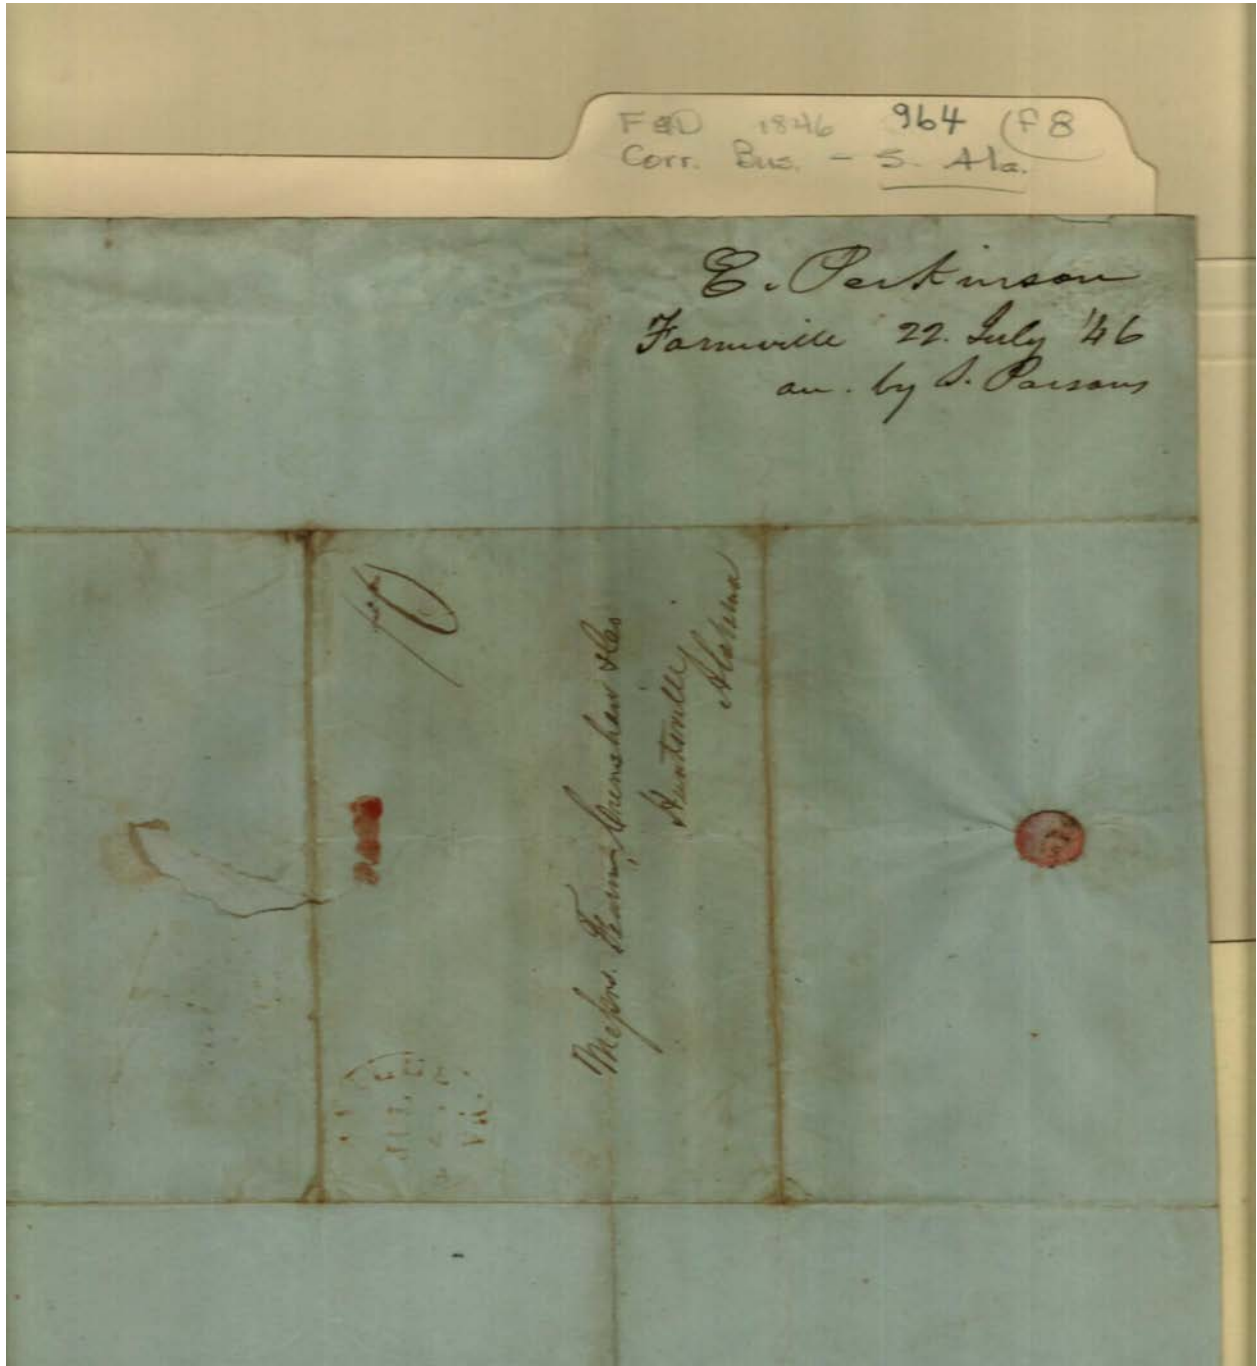 F&D 1846 964 (F8
Corr. Bus. - S. Ala.
E. Perkinson
Farmville 22. July '46
an. by S. Parsons
10
Messrs. Fearn, Crenshaw & Co
Huntsville
Alabama
JUL
VA.